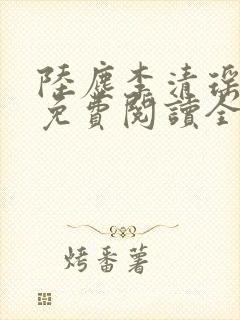 陸塵李清瑤
免費閱讀全
烤番薯